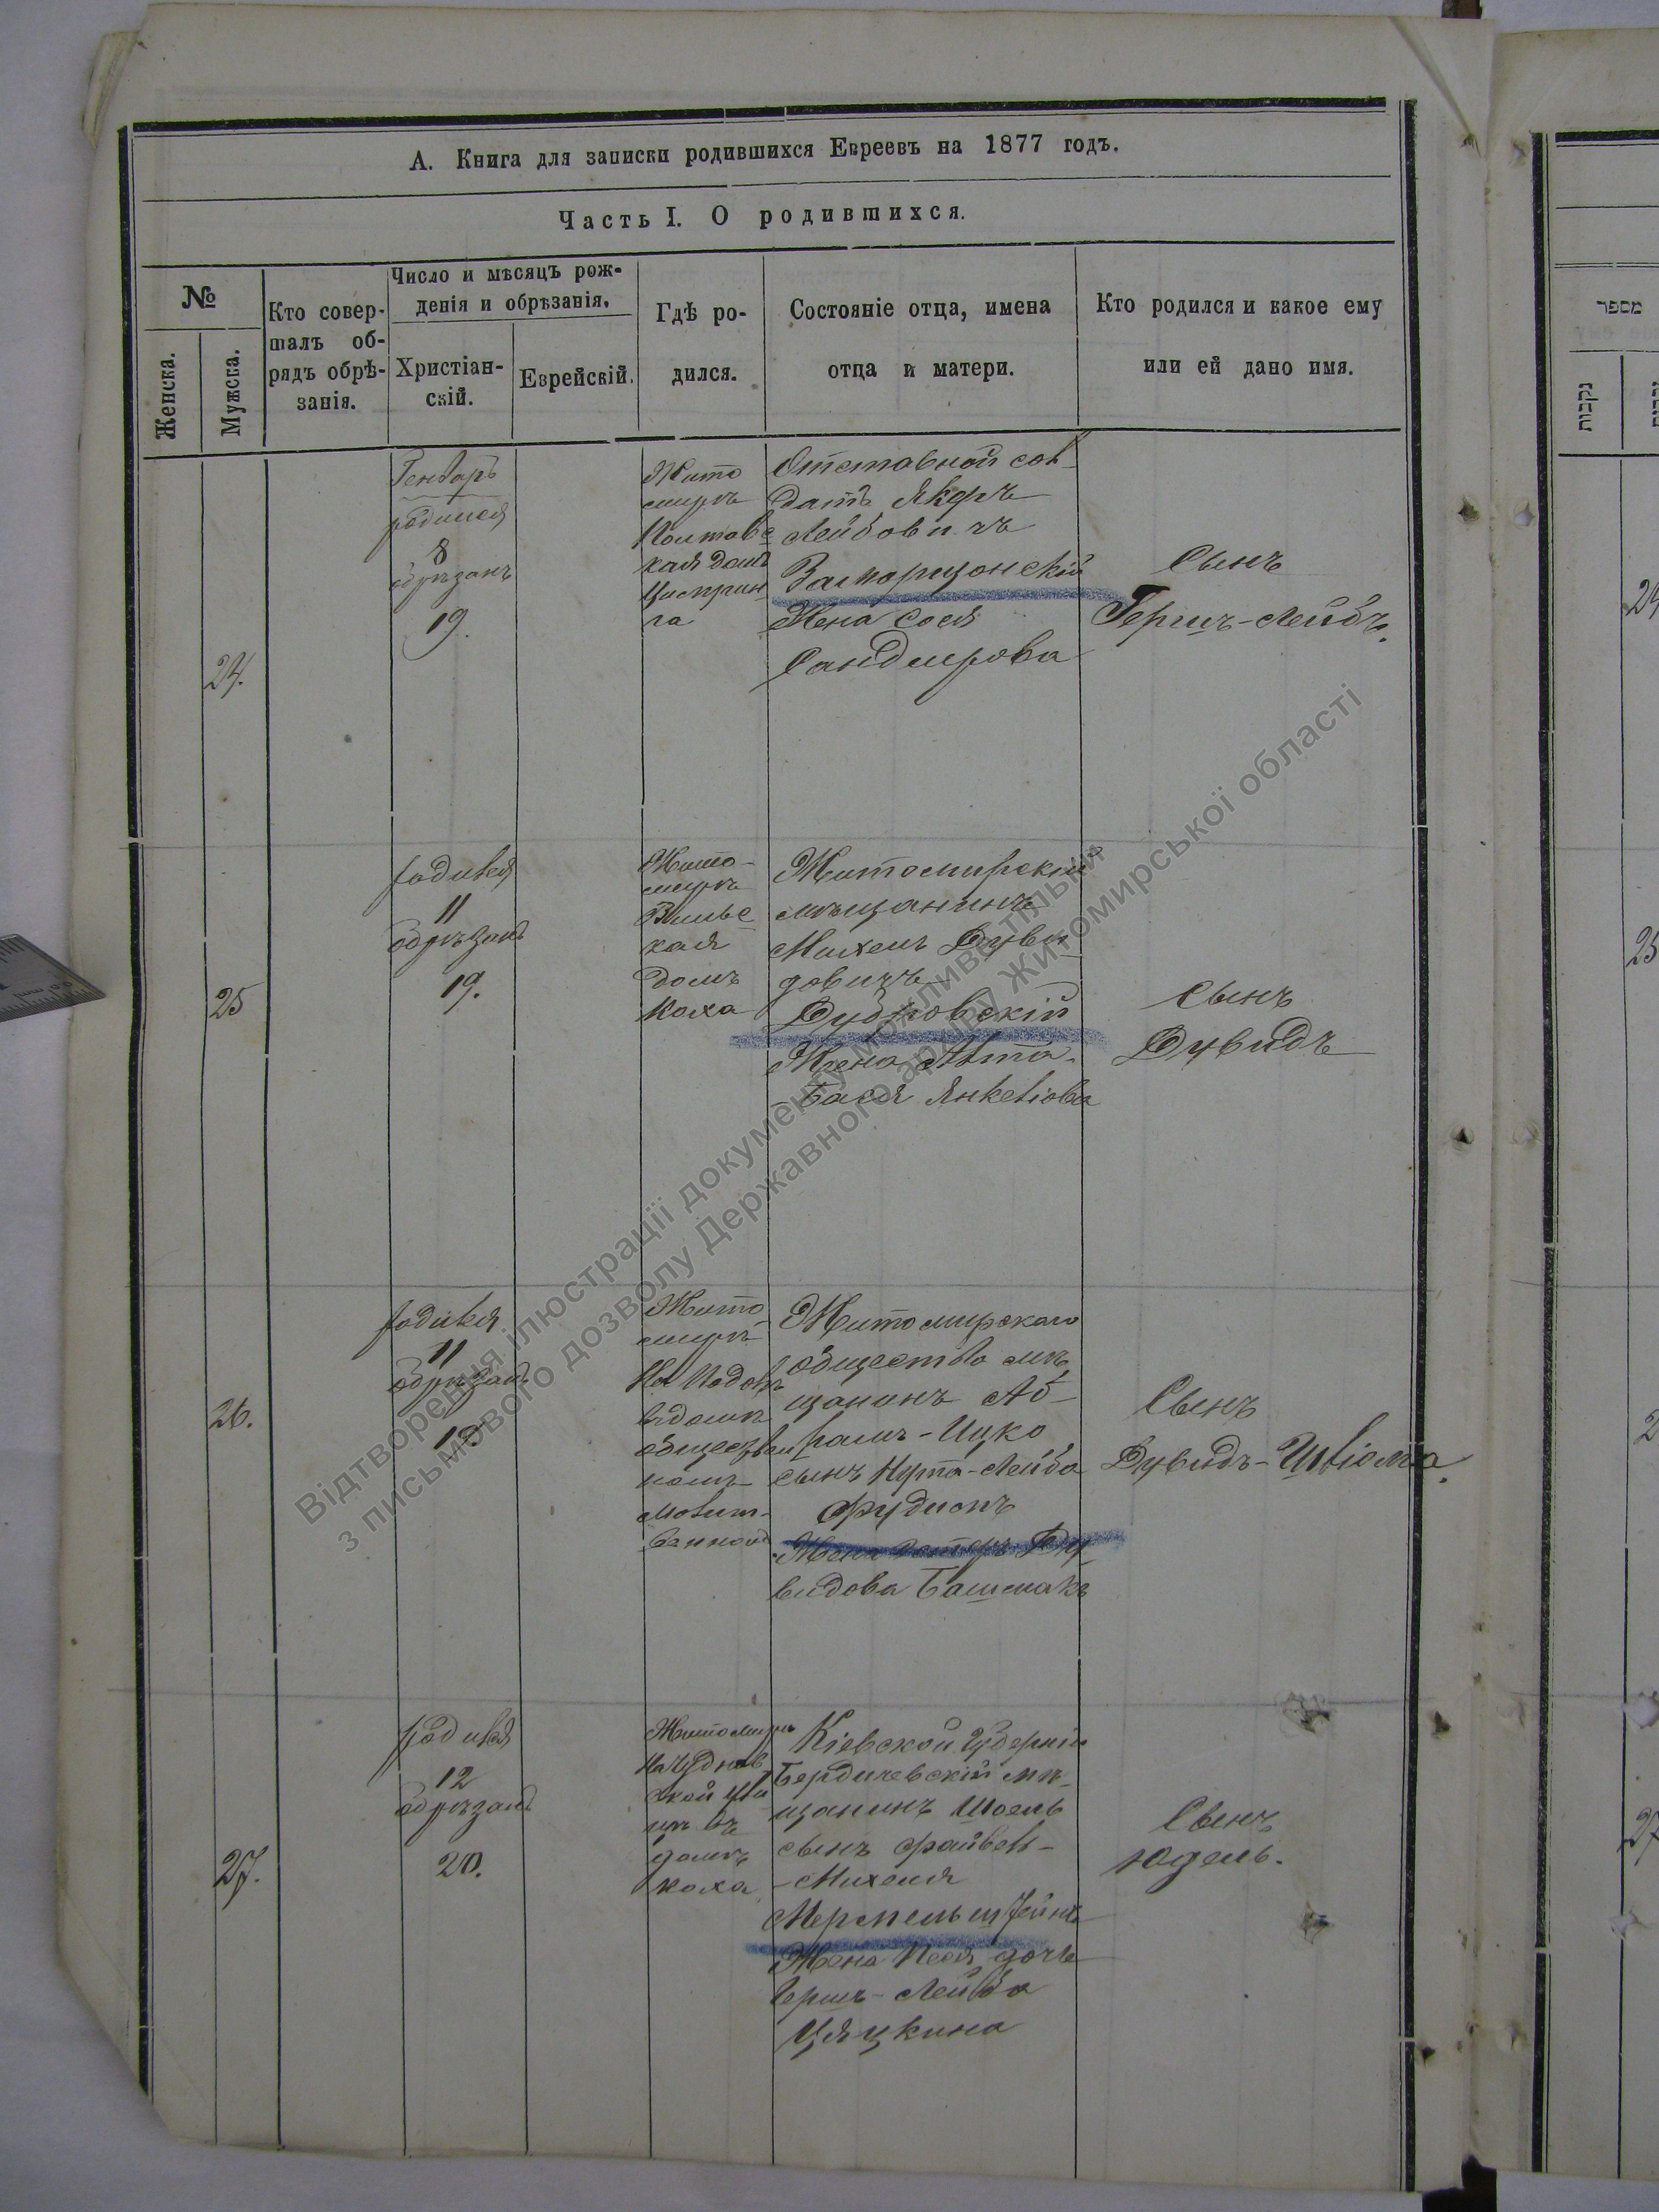 А. Книга для записки родившихся Евреевъ на 1877 годъ.
Часть I. О родившихся.
№
Женска.
Мужска.
Кто совер-
шалъ об-
рядъ обрѣ-
занія.
Число и мѣсяцъ рож-
денія и обрѣзанія.
Христіан-
скій.
Еврейскій.
Гдѣ ро-
дился.
Состояніе отца, имена
отца и матери.
Кто родился и какое ему
или ей дано имя.
24.
Генварь
родился
8
обрѣзанъ
19.
Жито
миръ
Полтавс
кая домъ
га
Отставной сол-
датъ
Лейбовичъ
Жена Сося
Сандмирова
Сынъ
Гершъ-Лейбъ.
25
родился
11
обрѣзанъ
19.
Жито-
миръ
Вильс
кая
домъ
Коха
Житомирскій
мѣщанинъ
Михель Дуви-
довичъ
Дубровскій
Жена
Бася Янкеліова
Сынъ
Дувидъ
26.
родился
11
обрѣзанъ
19.
Жито-
миръ
На Подолѣ
въ домѣ
обществен
номъ
молит-
Житомирского
общества мѣ
щанинъ Аб-
рамъ-Ицко
сынъ Нута-Лейба
Фудимъ
Жена Эстеръ Ду
видова Башмакъ
Сынъ
Дувидъ-Шліома.
27.
родился
12
обрѣзанъ
20.
Житомиръ
На Чуднов
ской ули
цѣ въ
домѣ
Коха
Кіевской Губерніи
Бердичевскій мѣ-
щанинъ Шоель
сынъ Файвель-
-Михеля
Мермельштейнъ
Жена Песя дочь
Гершъ-Лейба
Цяцкина
Сынъ
Юдель.
מספר
נקבות
24
25
2
27
Відтворення ілюстрації документу можливе тільки
з письмового дозволу Державного архіву Житомирської області